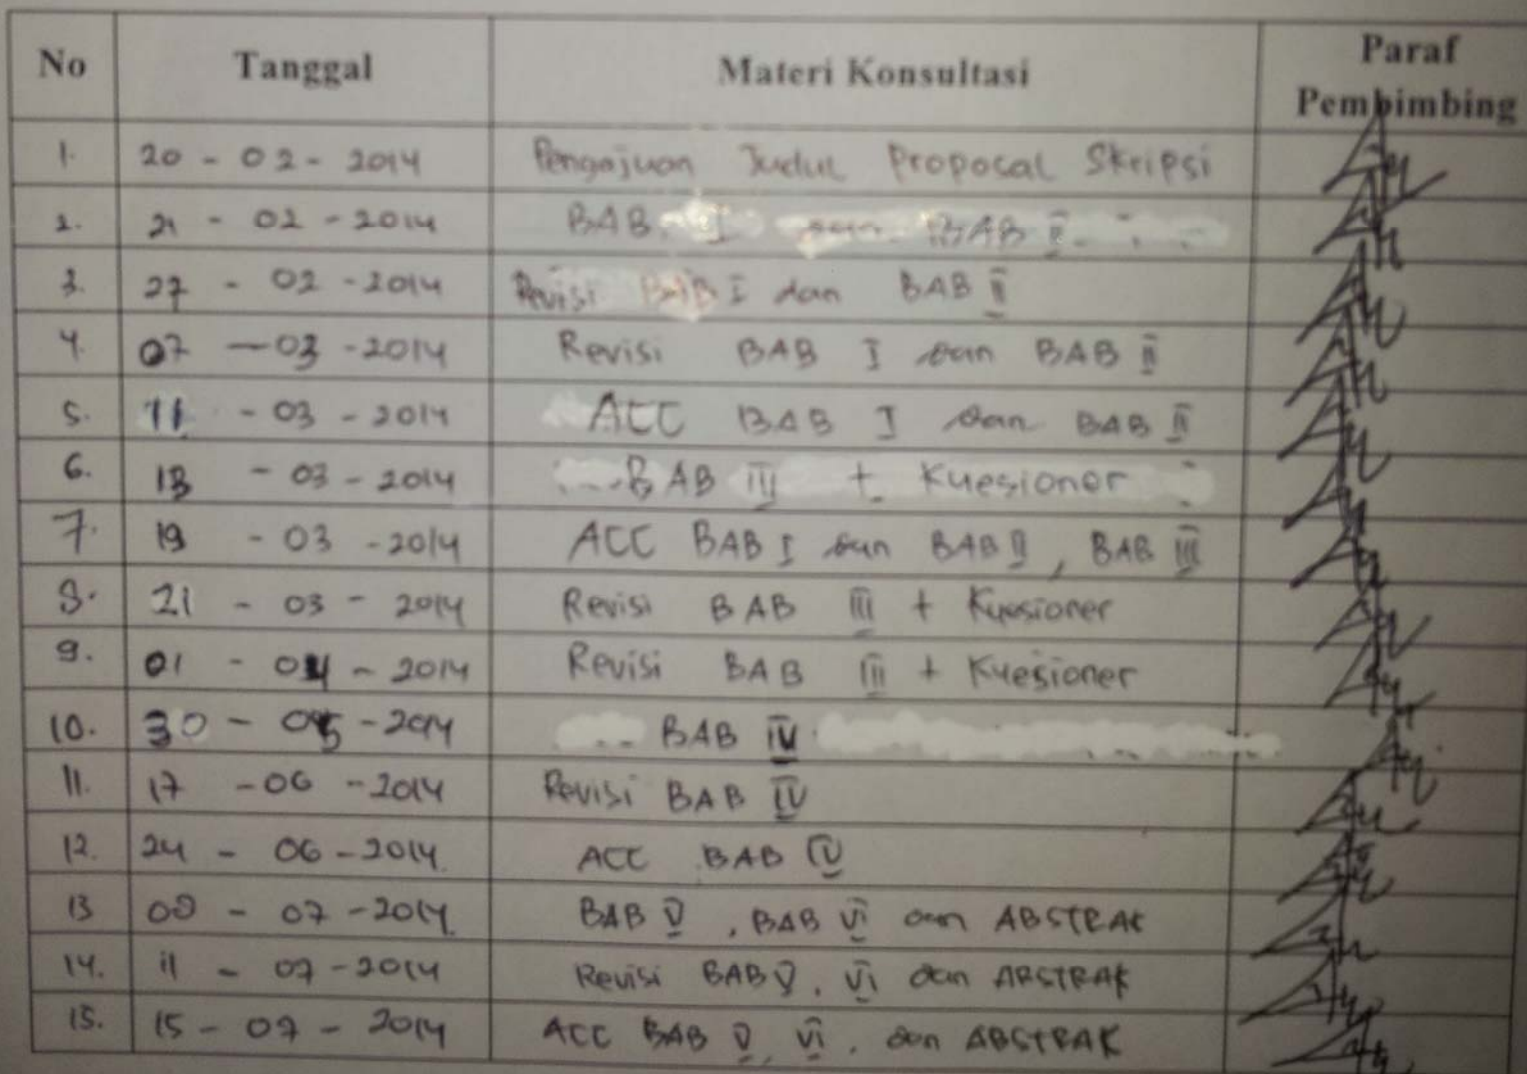 No Tanggal Materi Konsultasi Paraf Pembimbing
1. 20 - 02 - 2014 Pengajuan Judul Proposal Skripsi
2. 21 - 02 - 2014 BAB I dan BAB II
3. 27 - 02 - 2014 Revisi BAB I dan BAB II
4. 07 - 03 - 2014 Revisi BAB I dan BAB II
5. 11 - 03 - 2014 ACC BAB I dan BAB II
6. 13 - 03 - 2014 BAB III + Kuesioner
7. 19 - 03 - 2014 ACC BAB I dan BAB II, BAB III
8. 21 - 03 - 2014 Revisi BAB III + Kuesioner
9. 01 - 04 - 2014 Revisi BAB III + Kuesioner
10. 30 - 05 - 2014 BAB IV
11. 17 - 06 - 2014 Revisi BAB IV
12. 24 - 06 - 2014 ACC BAB IV
13 08 - 07 - 2014 BAB V, BAB VI dan ABSTRAK
14. 11 - 07 - 2014 Revisi BAB V, VI dan ABSTRAK
15. 15 - 07 - 2014 ACC BAB V, VI, dan ABSTRAK